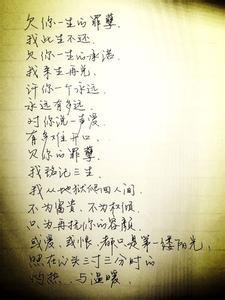 欠你一生的罪孽.
我此生不还.
欠你一生的承诺.
我来生再兑.
许你一个永远.
永远有多远.
对你说一声爱.
有多难开口.
欠你的罪孽.
我铭记三生.
我从地狱修回人间.
不为富贵.不为权倾.
只为再抚你的容颜.
或爱.或恨.都只是第一缕阳光,
照在心头三寸三分时的
灼热.与温暖.